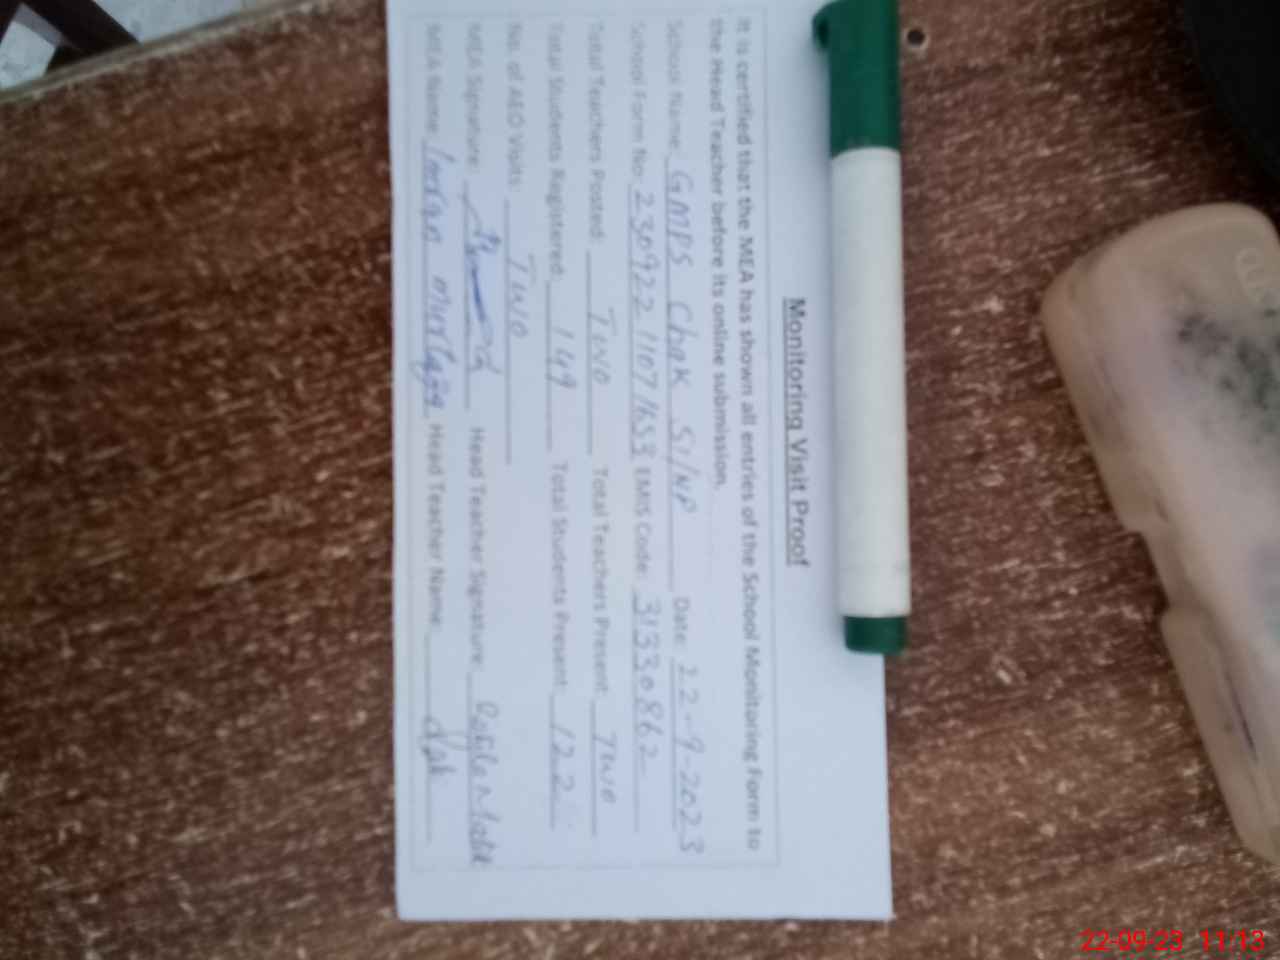 Monitoring Visit Proof
It is certified that the MEA has shown all entries of the School Monitoring Form to
the Head Teacher before its online submission.
School Name: GMPS Chak 51/NP Date: 22-9-2023
School Form No: 230922 1107 1653 EMIS Code: 31330862
Total Teachers Posted: Two Total Teachers Present: Two
Total Students Registered: 149 Total Students Present: 122
No. of AEO Visits: Two
MEA Signature: Head Teacher Signature
MEA Name: Imran murtaza Head Teacher Name:
22-09-23 11:13